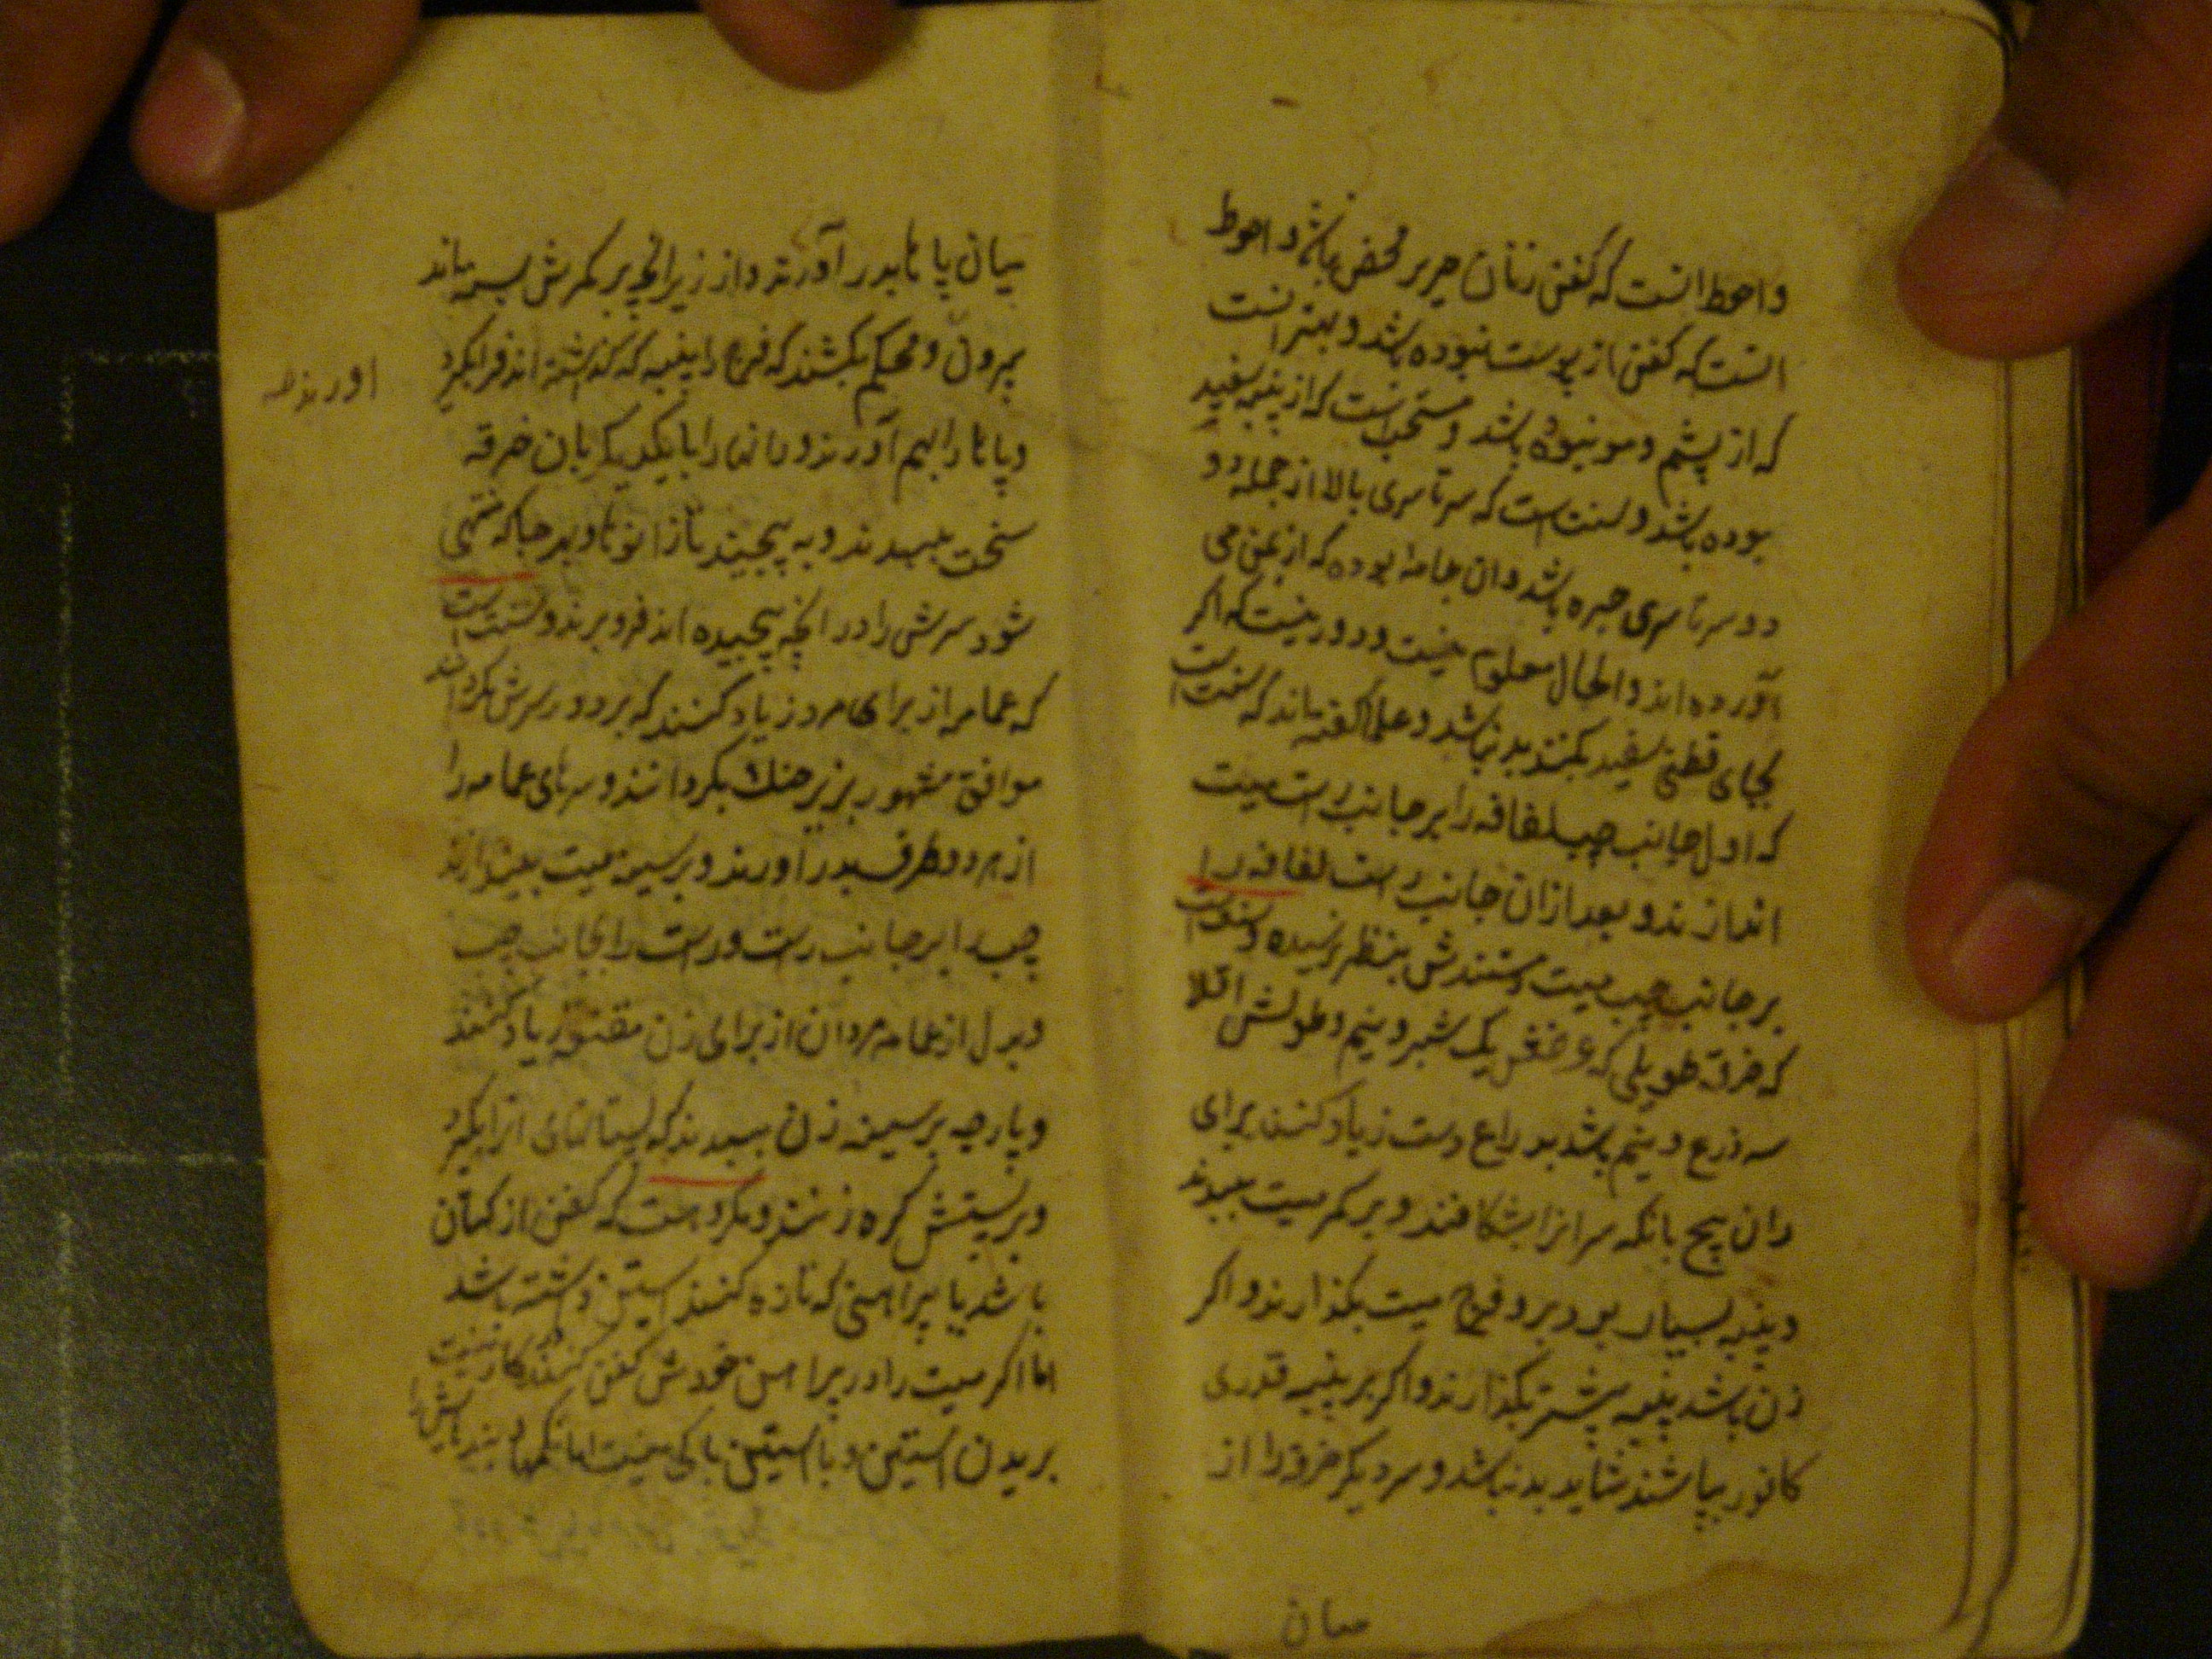 واحوط انست که کفن زنان حریر محض نباشد و احوط
انست که کفن از پوست نبوده باشد و بهتر انست
که از پشم و مو نبوده باشد و مستحب است که از پنبه سفید
بوده باشد و سنت است که سرتاسری بالا از جمله دو
دو سرتاسری حبره باشد و ان جامه بوده که از یمن می
آورده اند و الحال معلوم نیست و دور نیست که اکر
بجای قطنی سفید بکنند بد نباشد و علما کفته اند که سنت است
که اول جانب چپ لفافه را بر جانب راست میت
اندازند و بعد ازان جانب راست لفافه را
بر جانب چپ میت و مستندش بنظر نرسیده و سنت است
که خرقه طویلی که عرضش یک شبر و نیم و طولش اقلا
سه ذرع و نیم باشد بذراع دست زیاد کنند برای
ران پیچ بانکه سر انرا بشکافند و بر کمر میت ببندند
و پنبه بسیار بر دبر و فرج میت بکذارند و اکر
زن باشد پنبه بیشتر بکذارند و اکر بر پنبه قدری
کافور بپاشند شاید بد نباشد و سر دیکر خرقه را از
میان
میان پاها بدر آورند و از زیر انچه بر کمرش بسته اند
بیرون و محکم بکشند که فرج را پنبه که کذاشته اند فرابکیرد
اورند
و پاها را بهم آورند و رانها را با یکدیکر بان خرقه
سخت ببندند و به پیچند تا زانوها و بهر جا که منتهی
شود سرش را در انچه پیچیده اند فرو برند و سنت است
که عمامه از برای مرد زیاد کنند که بر دور سرش بکردانند
موافق مشهور بزیر حنک بکردانند و سرهای عمامه را
از هر دو طرف بدر اورند و بر سینه میت بیندازند
چپ را بر جانب راست و راست را بجانب چپ
و بدل از عمامه مردان از برای زن مقنعه زیاد کنند
و پارچه بر سینه زن ببندند که پستانهای انرا بکیرد
و بر پشتش کره زنند و مکروهست که کفن از کتان
باشد یا پیراهنی که تازه کنند استین داشته باشد
اما اکر میت را در پیراهن خودش کفن کنند در کار نیست
بریدن استین و با استین باکی نیست اما تکمها و بندهایش را